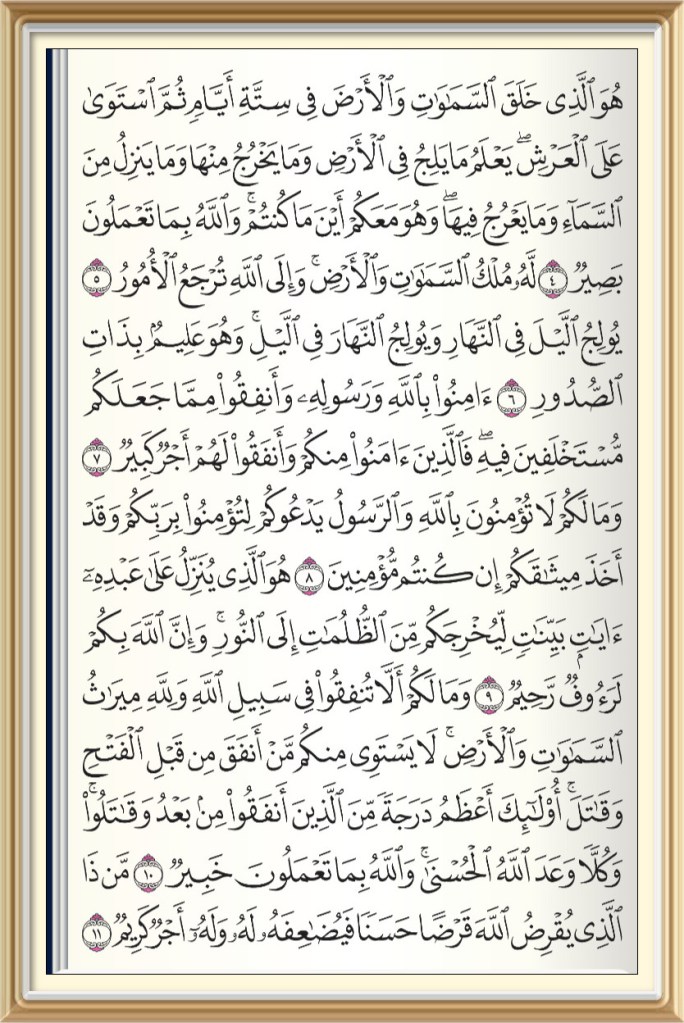 هُوَ ٱلَّذِى خَلَقَ ٱلسَّمَٰوَٰتِ وَٱلْأَرْضَ فِى سِتَّةِ أَيَّامٍ ثُمَّ ٱسْتَوَىٰ
عَلَى ٱلْعَرْشِ ۖ يَعْلَمُ مَا يَلِجُ فِى ٱلْأَرْضِ وَمَا يَخْرُجُ مِنْهَا وَمَا يَنزِلُ مِنَ
ٱلسَّمَآءِ وَمَا يَعْرُجُ فِيهَا ۖ وَهُوَ مَعَكُمْ أَيْنَ مَا كُنتُمْ ۚ وَٱللَّهُ بِمَا تَعْمَلُونَ
بَصِيرٌ ٤ لَّهُۥ مُلْكُ ٱلسَّمَٰوَٰتِ وَٱلْأَرْضِ ۚ وَإِلَى ٱللَّهِ تُرْجَعُ ٱلْأُمُورُ ٥
يُولِجُ ٱلَّيْلَ فِى ٱلنَّهَارِ وَيُولِجُ ٱلنَّهَارَ فِى ٱلَّيْلِ ۚ وَهُوَ عَلِيمٌۢ بِذَاتِ
ٱلصُّدُورِ ٦ ءَامِنُوا۟ بِٱللَّهِ وَرَسُولِهِۦ وَأَنفِقُوا۟ مِمَّا جَعَلَكُم
مُّسْتَخْلَفِينَ فِيهِ ۖ فَٱلَّذِينَ ءَامَنُوا۟ مِنكُمْ وَأَنفَقُوا۟ لَهُمْ أَجْرٌ كَبِيرٌ ٧
وَمَا لَكُمْ لَا تُؤْمِنُونَ بِٱللَّهِ وَٱلرَّسُولُ يَدْعُوكُمْ لِتُؤْمِنُوا۟ بِرَبِّكُمْ وَقَدْ
أَخَذَ مِيثَٰقَكُمْ إِن كُنتُم مُّؤْمِنِينَ ٨ هُوَ ٱلَّذِى يُنَزِّلُ عَلَىٰ عَبْدِهِۦٓ
ءَايَٰتٍۭ بَيِّنَٰتٍ لِّيُخْرِجَكُم مِّنَ ٱلظُّلُمَٰتِ إِلَى ٱلنُّورِ ۚ وَإِنَّ ٱللَّهَ بِكُمْ
لَرَءُوفٌ رَّحِيمٌ ٩ وَمَا لَكُمْ أَلَّا تُنفِقُوا۟ فِى سَبِيلِ ٱللَّهِ وَلِلَّهِ مِيرَٰثُ
ٱلسَّمَٰوَٰتِ وَٱلْأَرْضِ ۚ لَا يَسْتَوِى مِنكُم مَّنْ أَنفَقَ مِن قَبْلِ ٱلْفَتْحِ
وَقَٰتَلَ ۚ أُو۟لَٰٓئِكَ أَعْظَمُ دَرَجَةً مِّنَ ٱلَّذِينَ أَنفَقُوا۟ مِنۢ بَعْدُ وَقَٰتَلُوا۟ ۚ
وَكُلًّا وَعَدَ ٱللَّهُ ٱلْحُسْنَىٰ ۚ وَٱللَّهُ بِمَا تَعْمَلُونَ خَبِيرٌ ١٠ مَّن ذَا
ٱلَّذِى يُقْرِضُ ٱللَّهَ قَرْضًا حَسَنًا فَيُضَٰعِفَهُۥ لَهُۥ وَلَهُۥٓ أَجْرٌ كَرِيمٌ ١١